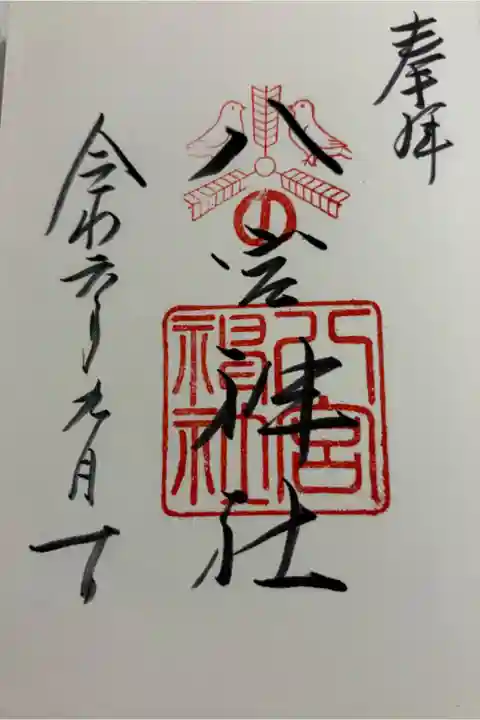 奉拝
八宮神社
八宮
神社
令和六年九月一日